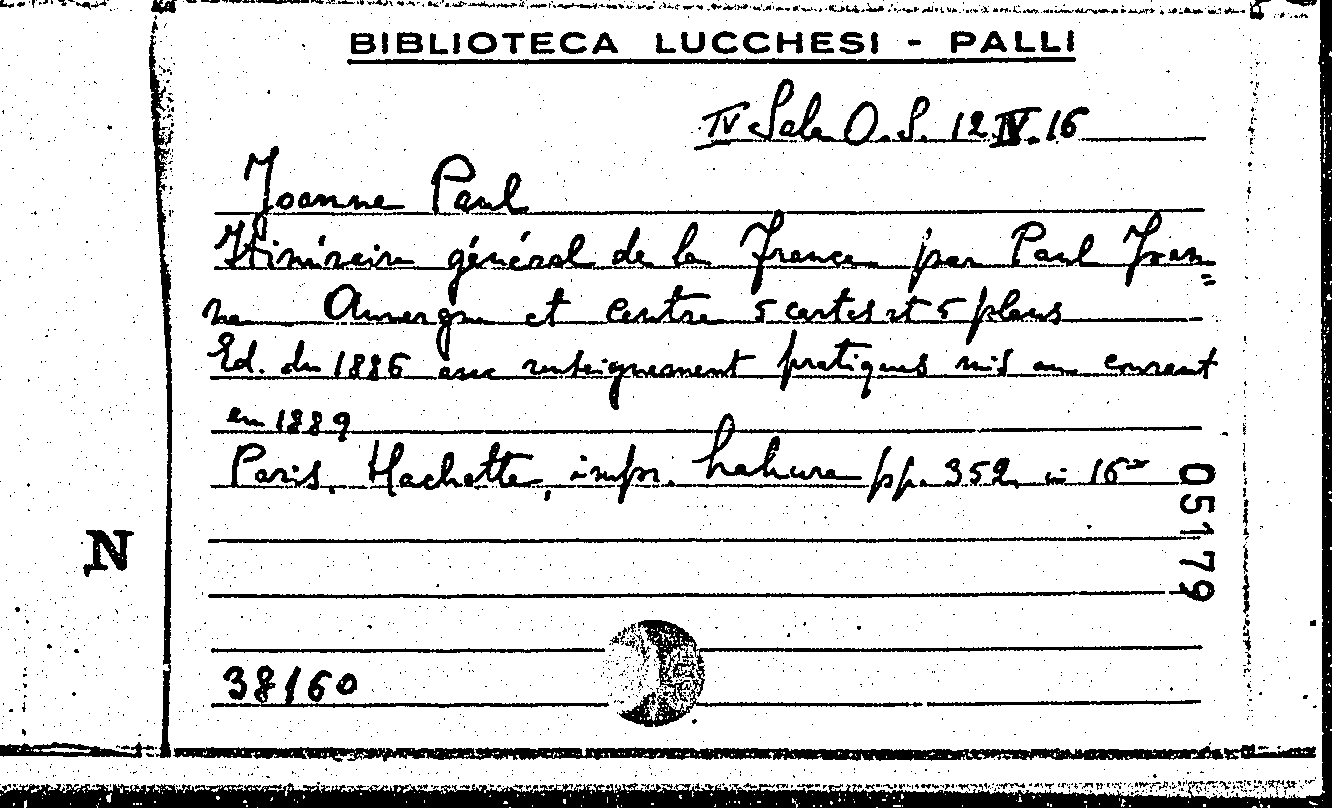 BIBLIOTECA LUCCHESI - PALLI
IV Sala O.S. 12 IV. 16
Joanne Paul
Itinéraire général de la France par Paul Joan=
ne Auvergne et Centre 5 cartes et 5 plans
Ed. du 1886 avec renseignement pratiques mis au courant
en 1889
Paris, Hachette, impr. Lahure pp. 352, in 16°
05179
N
38160